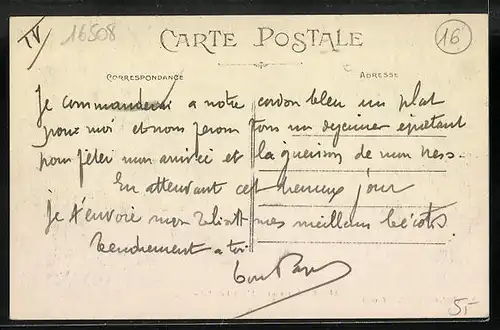 TV
16508
16
CARTE POSTALE
CORRESPONDANCE
ADRESSE
Je commanderai a notre cordon bleu un plat
pour moi et nous ferons tous un dejeuner épatant
pour fêter mon arrivée et la guérison de mon
En attendant cet heureux jour
je t'envoie mes meilleurs bécots
Tendrement a toi
5-